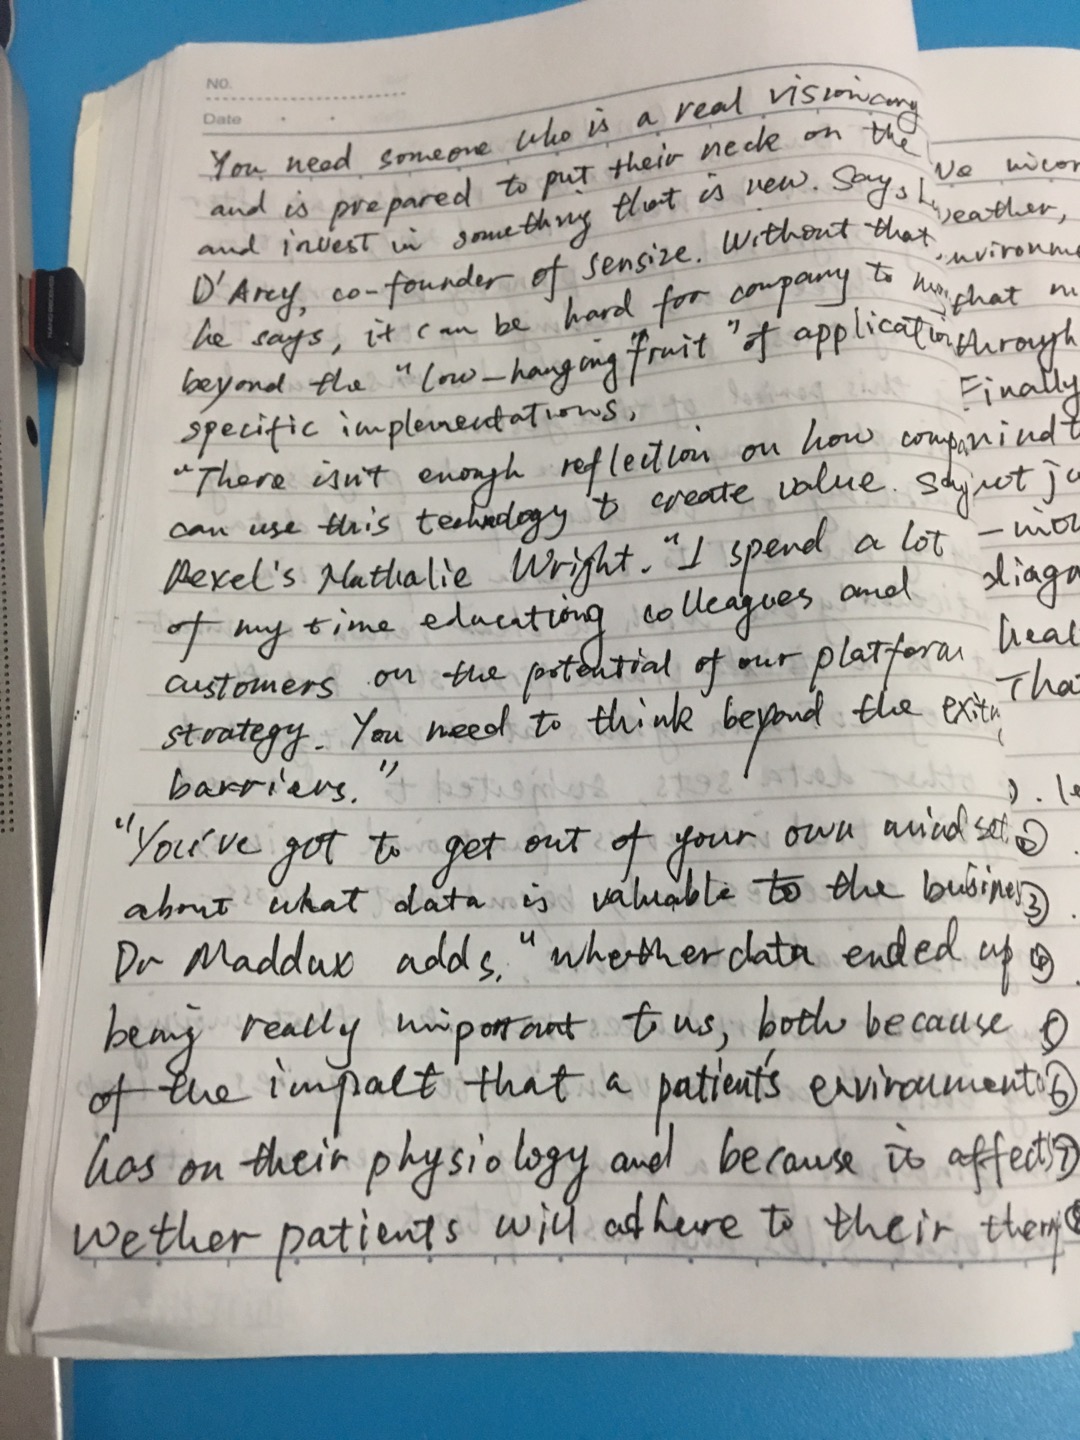 NO.
Date
You need someone who is a real visionary
and is prepared to put their neck on the
and invest in something that is new. Says
D'Arcy, co-founder of sensize. Without that
he says, it can be hard for company to
beyond the "low-hanging "fruit" of application
specific implementations,
"There isn't enough reflection on how
can use this technology to create value. Say
Rexel's Nathalie Wright. "I spend a lot
of my time educationg colleagues and
customers on the potential of our platform
strategy. You need to think beyond the
barriers."
"You've got to get out of your own mindset
about what data is valuable to the busines
Dr Maddux adds, "whether data ended up
being really important to us, both because
of the impact that a patient's environment
has on their physiology and because it affects
wether patients will adhere to their
eather,
that
through
Finally